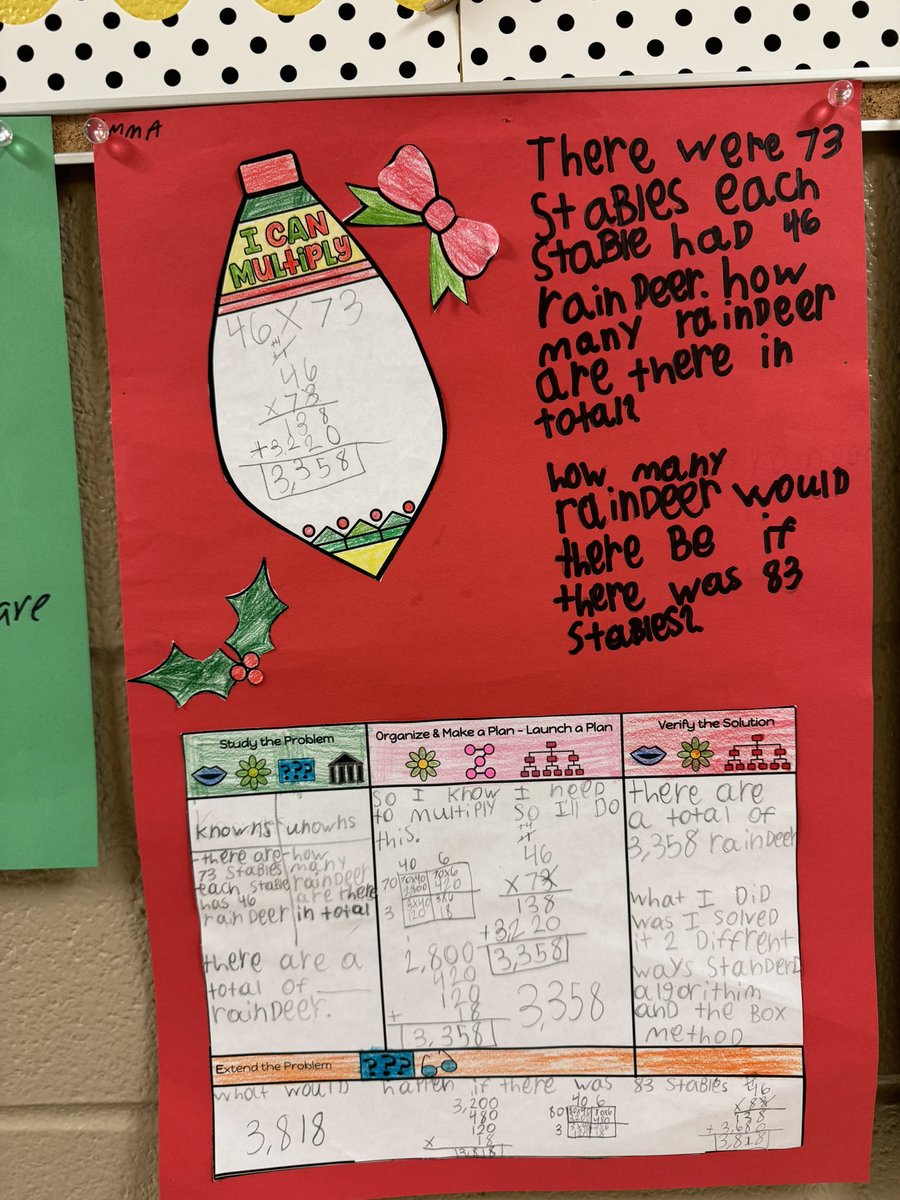 MMA
I CAN
MULTIPLY
46 x 73
+4
+1
46
x 73
138
+3,220
3,358
There were 73
stables each
stable had 46
rainDeer. how
many rainDeer
are there in
total?
how many
rainDeer would
there Be if
there was 83
stables?
are
Study the Problem
???
knowns
unowns
-there are
73 stables
each stable
has 46
rainDeer
-how
many
rainDeer
are there
in total
there are a
total of ___
rainDeer.
Organize & Make a Plan - Launch a Plan
So I know I need
to multiply so I'll Do
this.
40 6
70 70x40 70x6
2800 420
3 3x40 3x6
120 18
2,800
420
120
+ 18
3,358
+4
+1
46
x 73
138
+3,220
3,358
3,358
Verify the Solution
there are
a total of
3,358 rainDeer
what I DiD
was I solved
it 2 Diffrent
ways StanderD
algorithim
and the Box
methoD
Extend the Problem
???
what woulD happen if there was 83 stables
3,818
3,200
480
120
x 18
3,818
40 6
80 80x6
480
3
46
x 83
138
+3,680
3,818